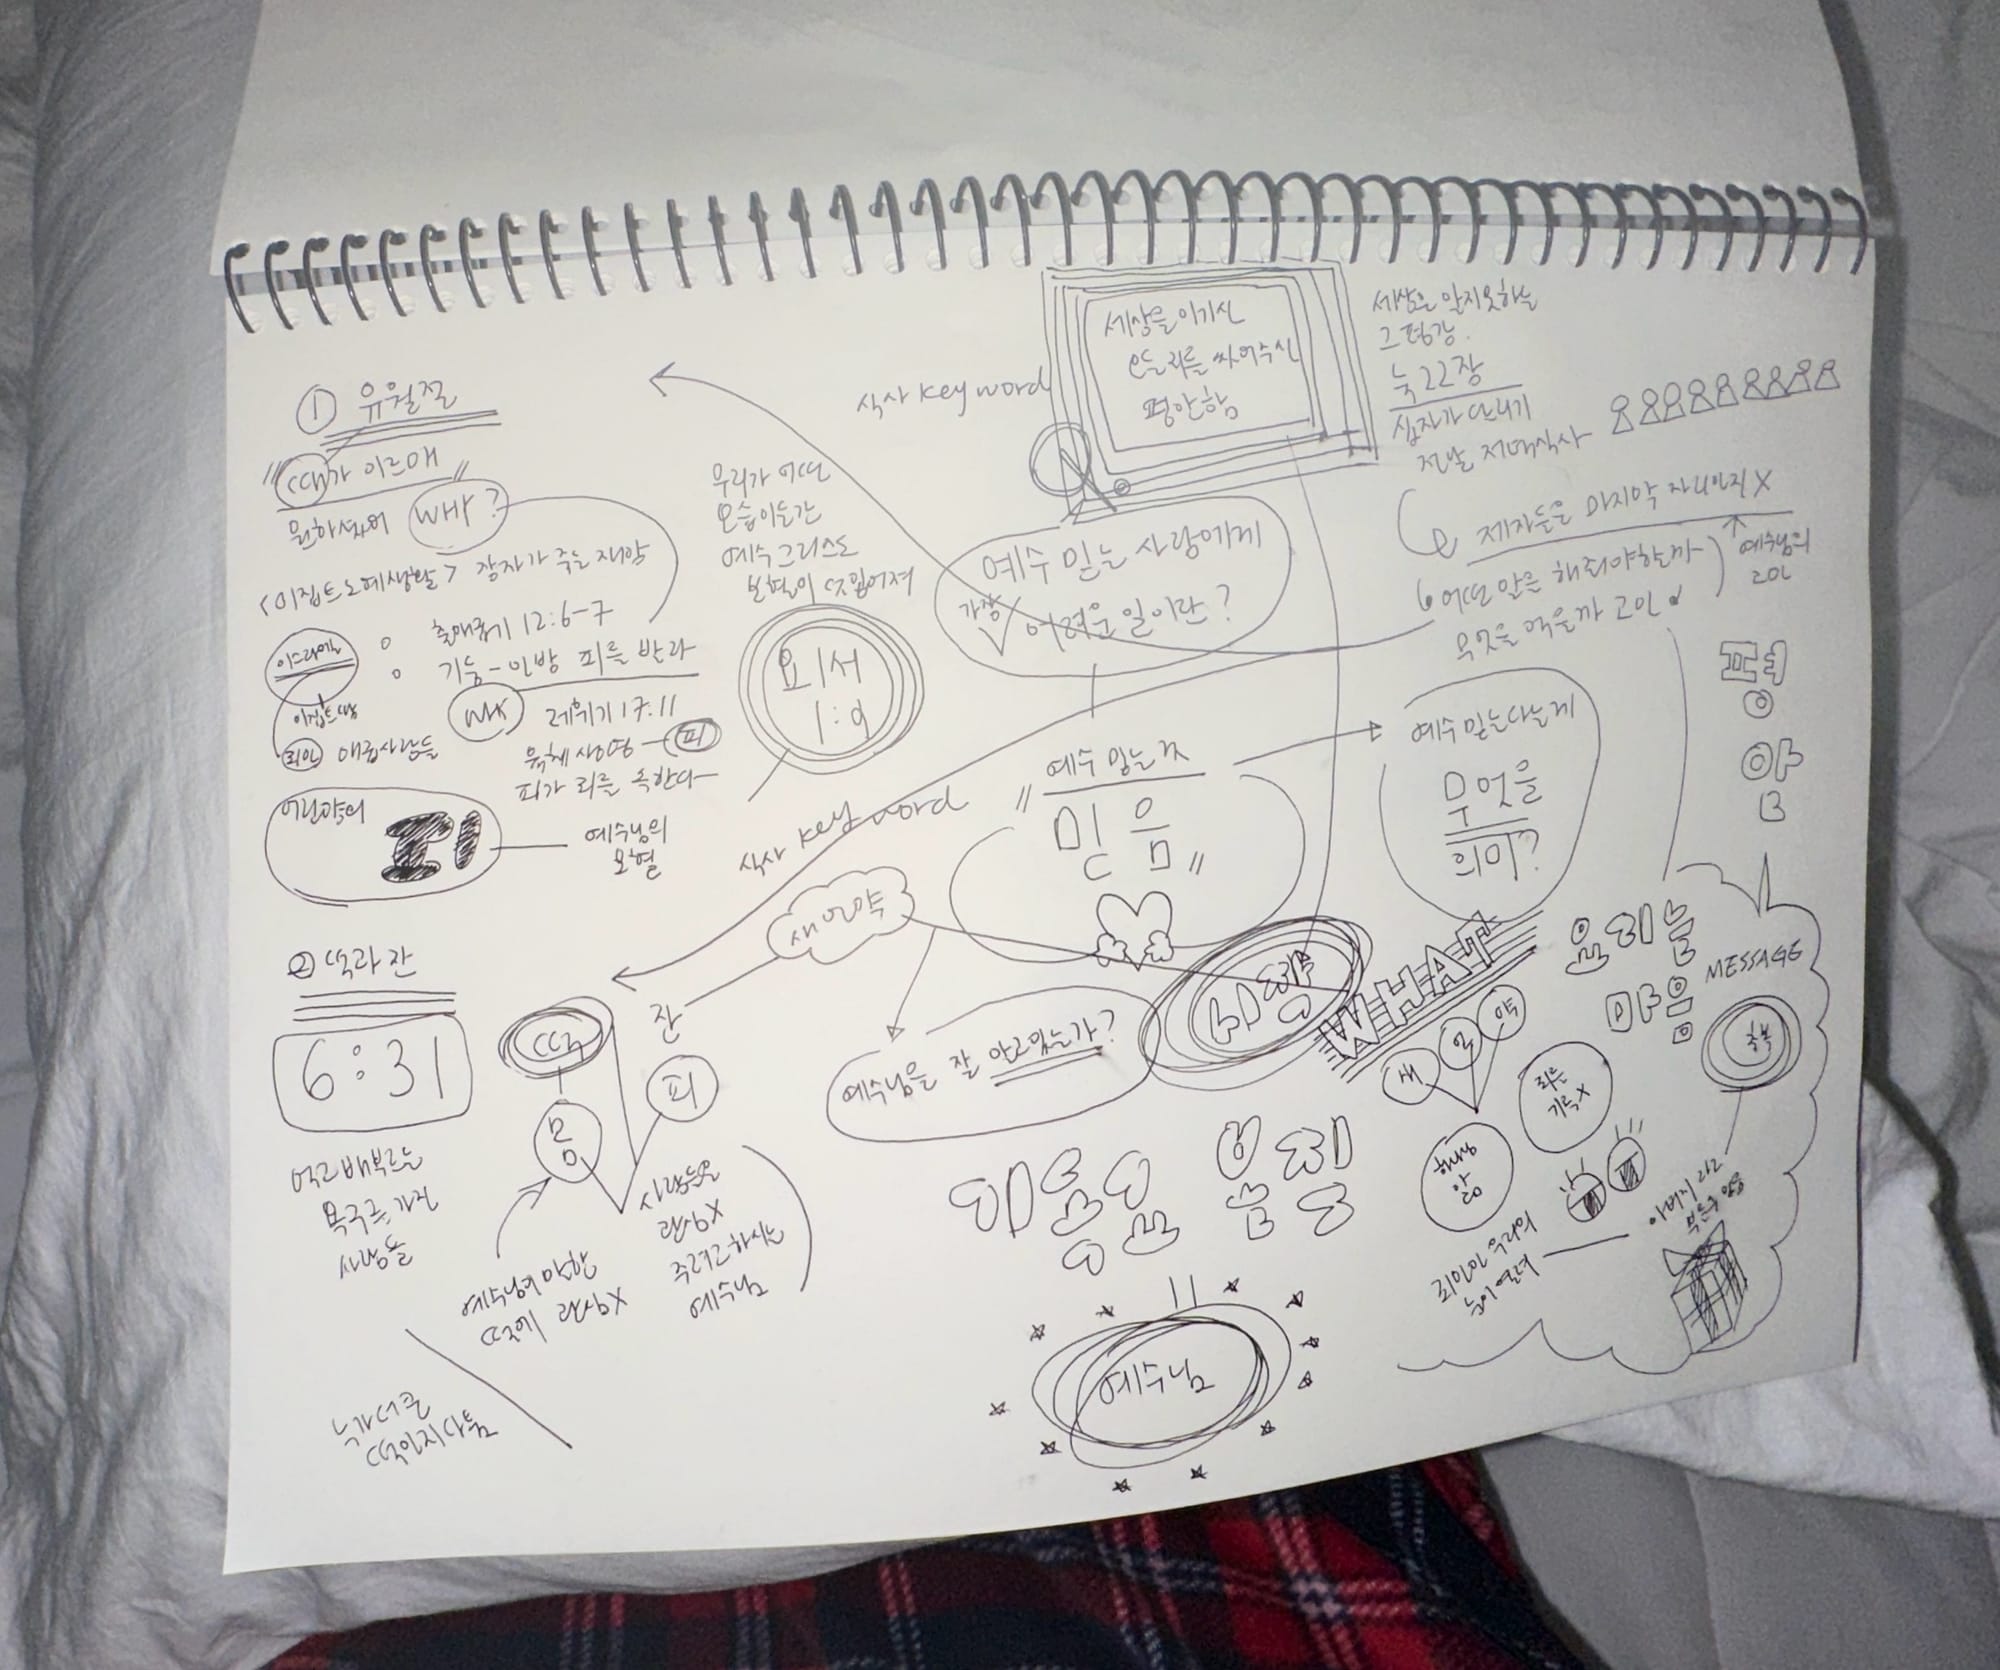 ① 유월절
"때가 이르매"
원하셨어 WHY?
<이집트노예생활> 장자가 죽는 재앙
이스라엘
출애굽기 12:6-7
기둥-인방 피를 발라
이집트땅
WHY
레위기 17:11
죄인 애굽사람들
육체 생명 - 피
피가 죄를 속한다
어린양의
피
예수님의
보혈
우리가 어떤
모습이든간
예수그리스도
보혈이 덧입어져
요1서
1:9
식사 key word
세상을 이기신
우리를
평안함
세상은 알지못하는
그 평강.
눅22장
십자가 지시기
전날 저녁식사
제자들은 마지막 자리인지 X
예수님의
고민
어떤 말을 해줘야할까
무엇을 먹을까 고민
예수 믿는 사람에게
가장
어려운 일이란?
예수 믿는 것
"믿음"
예수믿는다는게
무엇을
의미?
평
안
식사 key word
② 떡과 잔
6:31
먹고배부르는
목구를 가진
사람들
떡
몸
잔
피
새언약
예수님이 말한
떡에 관심X
사람들은
관심X
주려고하시는
예수님
누가 나은
떡인지 다툼
예수님을 잘 알고있는가?
시작
WHAT
우리는
마음
MESSAGE
축복
새 언 약
죄는
기억X
아버지라고
죄인인 우리의
눈이 열려
예수님